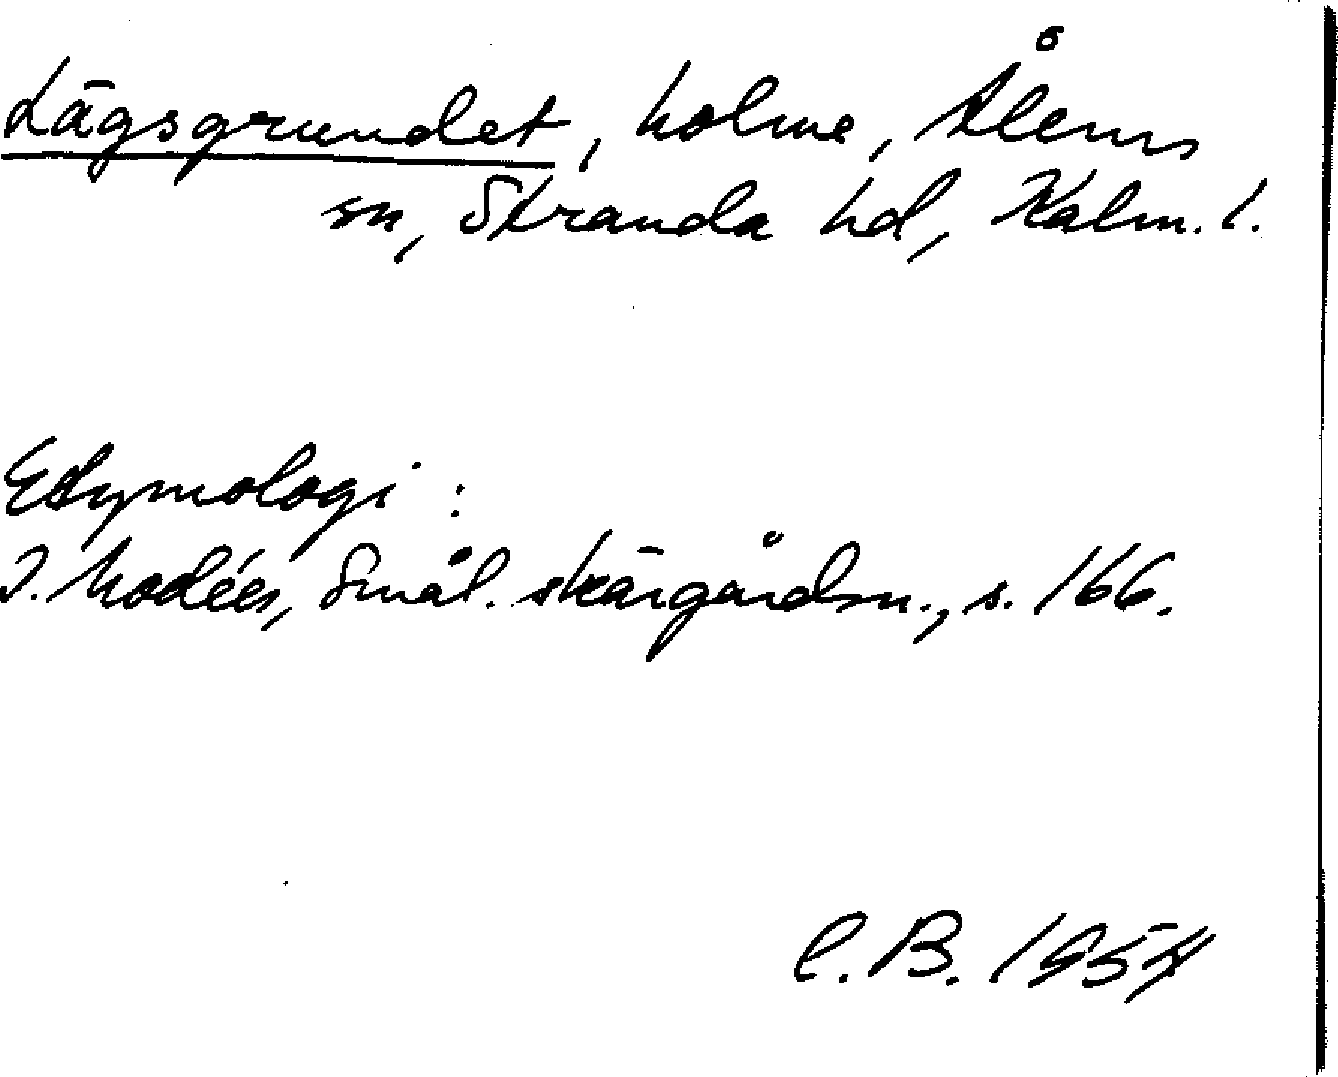 Lägsgrundet, holme, Ålems
sn, Stranda hd, Kalm. l.
Etymologi:
I. Modéer, Smål. skärgårdsn., s. 166.
C. B. 1954